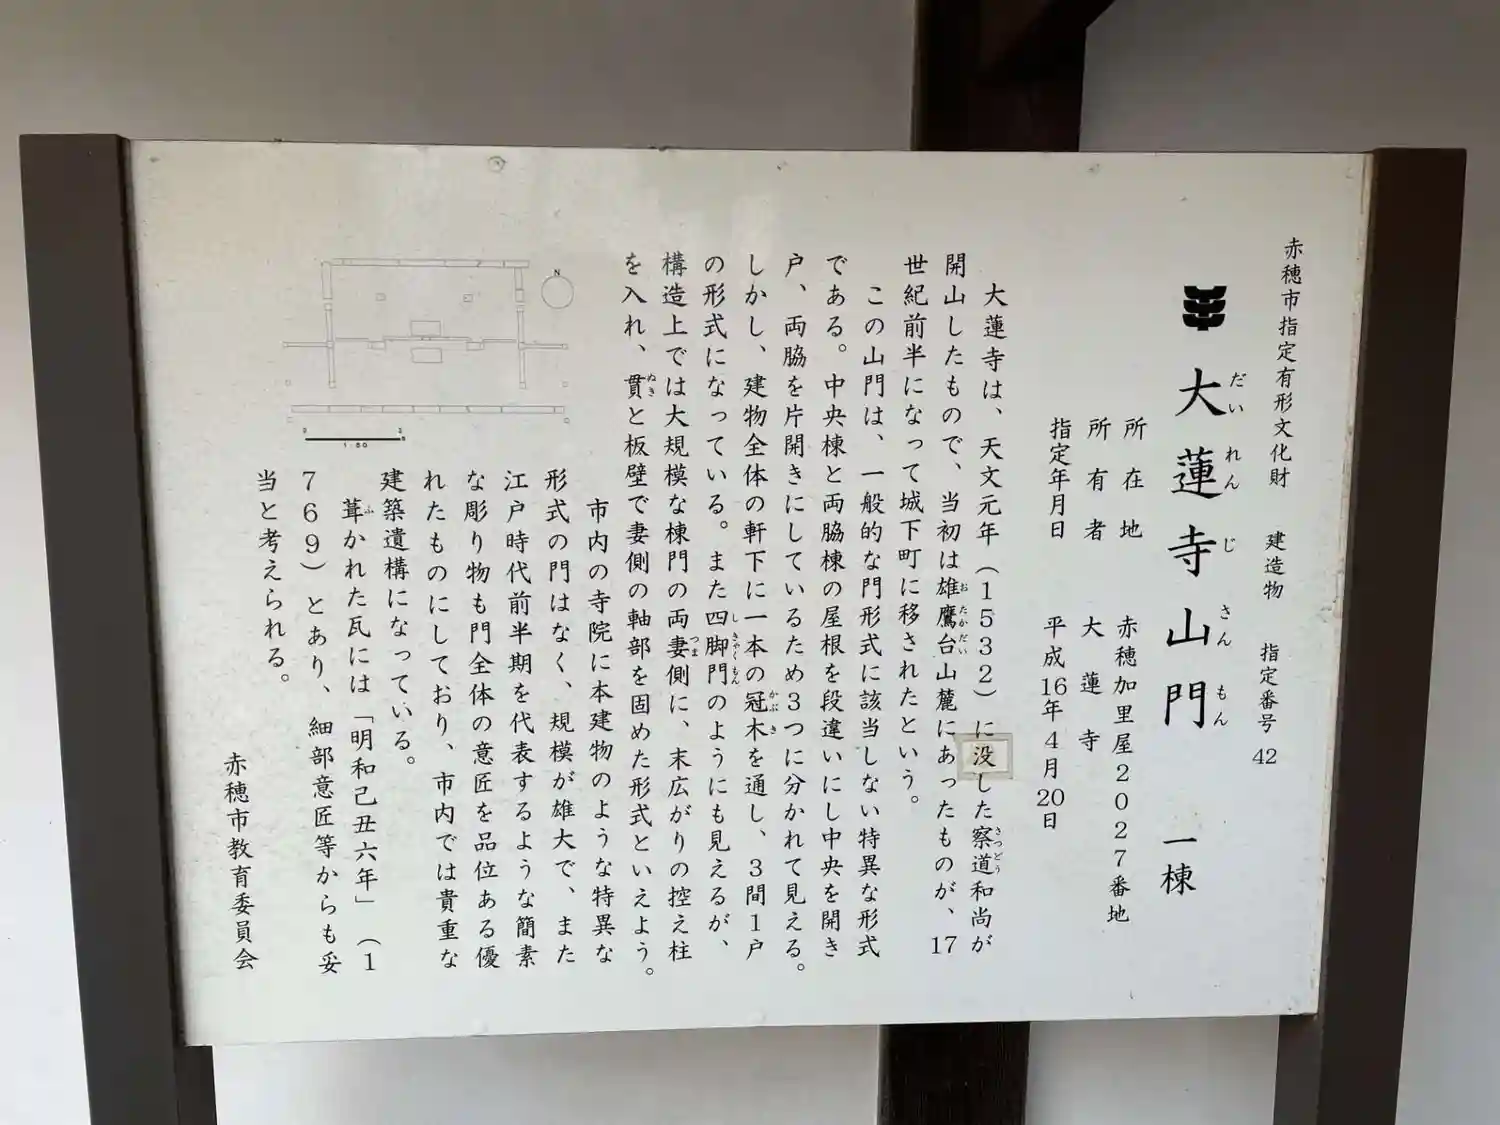 赤穂市指定有形文化財　建造物　指定番号 42
大蓮寺山門　一棟
だいれんじさんもん
所在地　赤穂加里屋2027番地
所有者　大蓮寺
指定年月日　平成16年4月20日
大蓮寺は、天文元年（1532）に没した察道和尚が
さつどう
開山したもので、当初は雄鷹台山麓にあったものが、17
おたかだい
世紀前半になって城下町に移されたという。
この山門は、一般的な門形式に該当しない特異な形式
である。中央棟と両脇棟の屋根を段違いにし中央を開き
戸、両脇を片開きにしているため3つに分かれて見える。
しかし、建物全体の軒下に一本の冠木を通し、3間1戸
かぶき
の形式になっている。また四脚門のようにも見えるが、
しきゃくもん
構造上では大規模な棟門の両妻側に、末広がりの控え柱
つま
を入れ、貫と板壁で妻側の軸部を固めた形式といえよう。
ぬき
市内の寺院に本建物のような特異な
形式の門はなく、規模が雄大で、また
江戸時代前半期を代表するような簡素
な彫り物も門全体の意匠を品位ある優
れたものにしており、市内では貴重な
建築遺構になっている。
葺かれた瓦には「明和己丑六年」（1
ふ
769）とあり、細部意匠等からも妥
当と考えられる。
赤穂市教育委員会
N
1:80